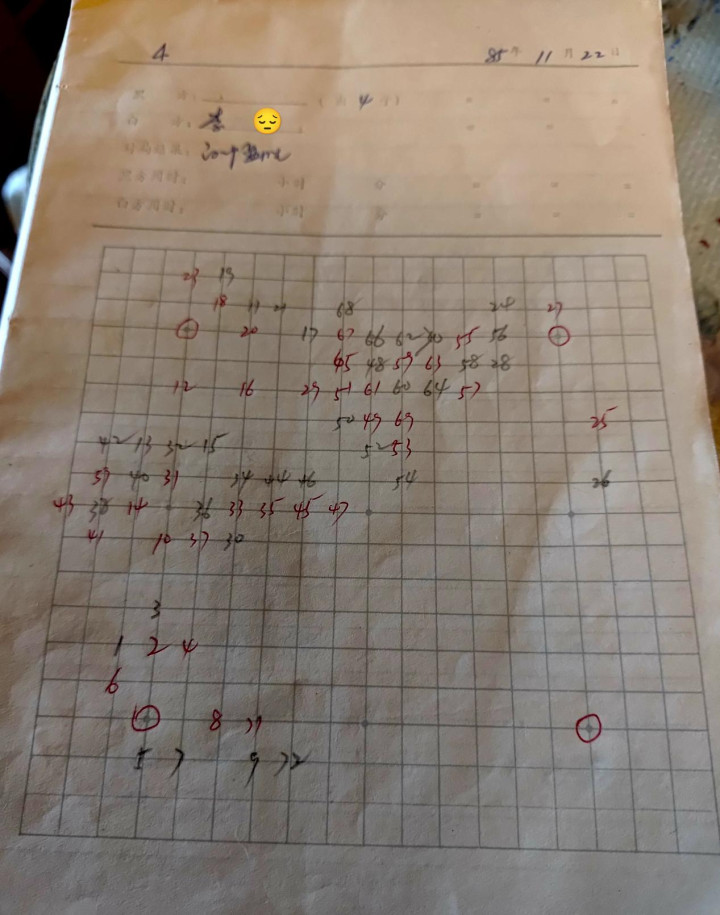 4 85年 11月 22日
黑 方： （让 4 子）
白 方：
对局结果：
黑方用时： 小时 分
白方用时： 小时 分
23 19
18 11 21 68 24 27
20 17 67 66 62 70 55 56
65 48 59 63 58 28
12 16 29 51 61 60 64 57
50 49 69 25
42 13 32 15 52 53
39 40 31 34 44 46 54 26
43 38 14 36 33 35 45 47
41 10 37 30
3
1 2 4
6
8
5 7 9 22